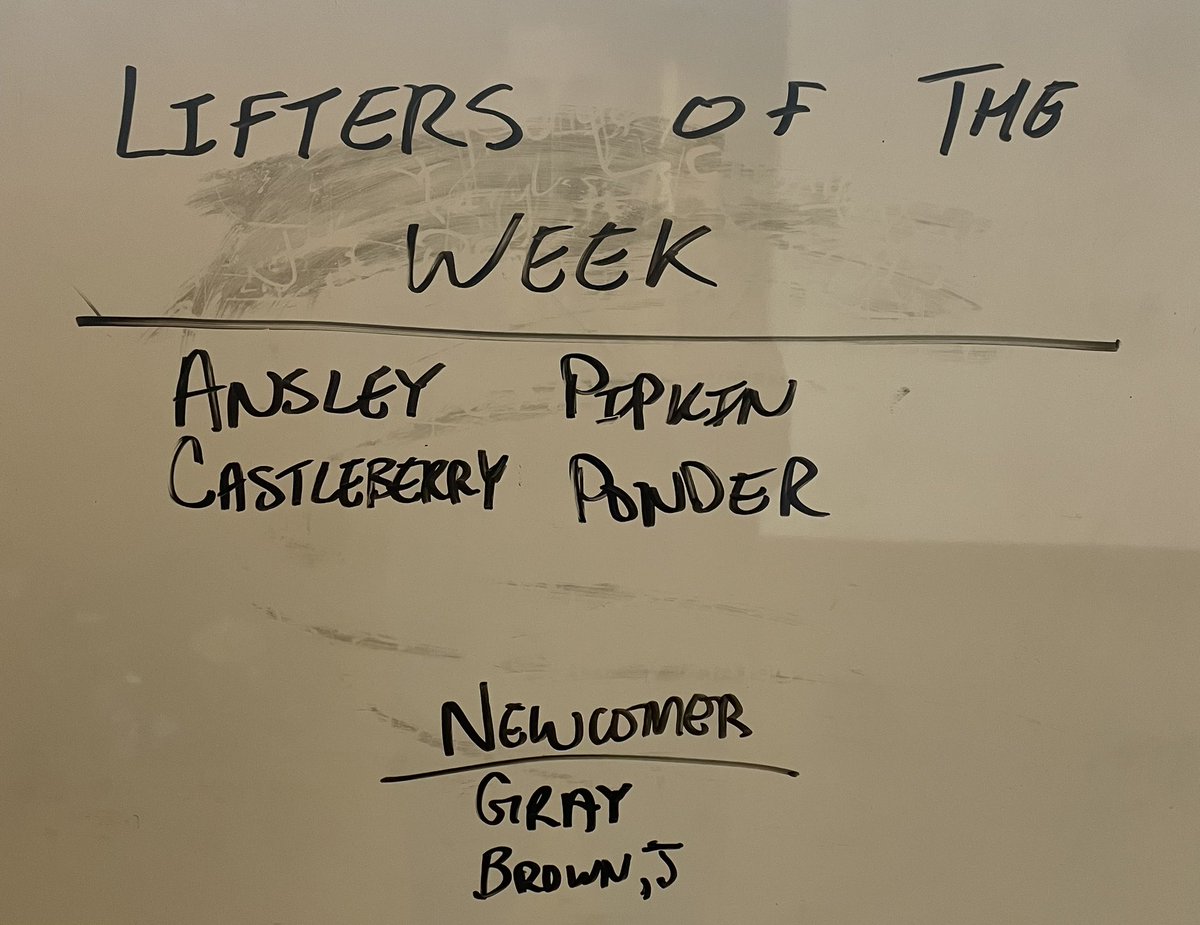 LIFTERS OF THE
WEEK
ANSLEY PIPKIN
CASTLEBERRY PONDER
NEWCOMER
GRAY
BROWN, J